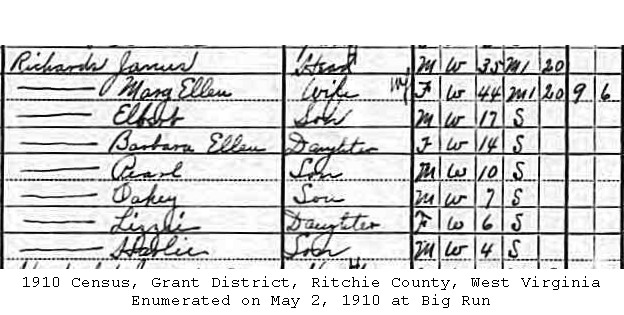 Richards James Head M W 35 M1 20
Mary Ellen Wife F W 44 M1 20 9 6
Elbert Son M W 17 S
Barbara Ellen Daughter F W 14 S
Pearl Son M W 10 S
Oakey Son M W 7 S
Lizzie Daughter F W 6 S
Son M W 4 S
1910 Census, Grant District, Ritchie County, West Virginia
Enumerated on May 2, 1910 at Big Run